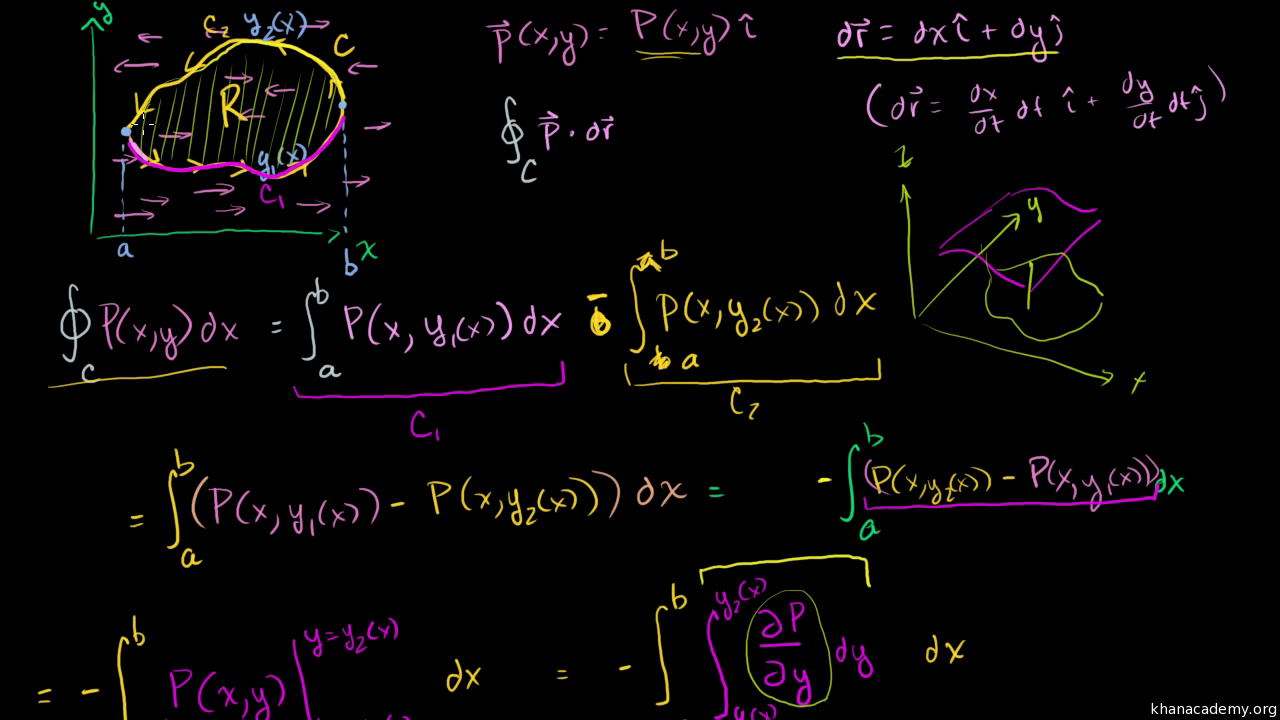 y C₂ y₂(x) C
R
y₁(x)
C₁
a b x
P⃗(x,y) = P(x,y) î
dr⃗ = dx î + dy ĵ
(dr⃗ = dx/dt dt î + dy/dt dt ĵ)
∮_C P⃗ · dr⃗
z y x
∮_C P(x,y) dx = ∫_a^b P(x, y₁(x)) dx − ∫_a^b P(x, y₂(x)) dx
C₁ C₂
= ∫_a^b (P(x, y₁(x)) − P(x, y₂(x))) dx = − ∫_a^b (P(x, y₂(x)) − P(x, y₁(x))) dx
= − ∫^b P(x,y) | y=y₂(x) dx = − ∫^b ∫_{y₁(x)}^{y₂(x)} ∂P/∂y dy dx
khanacademy.org